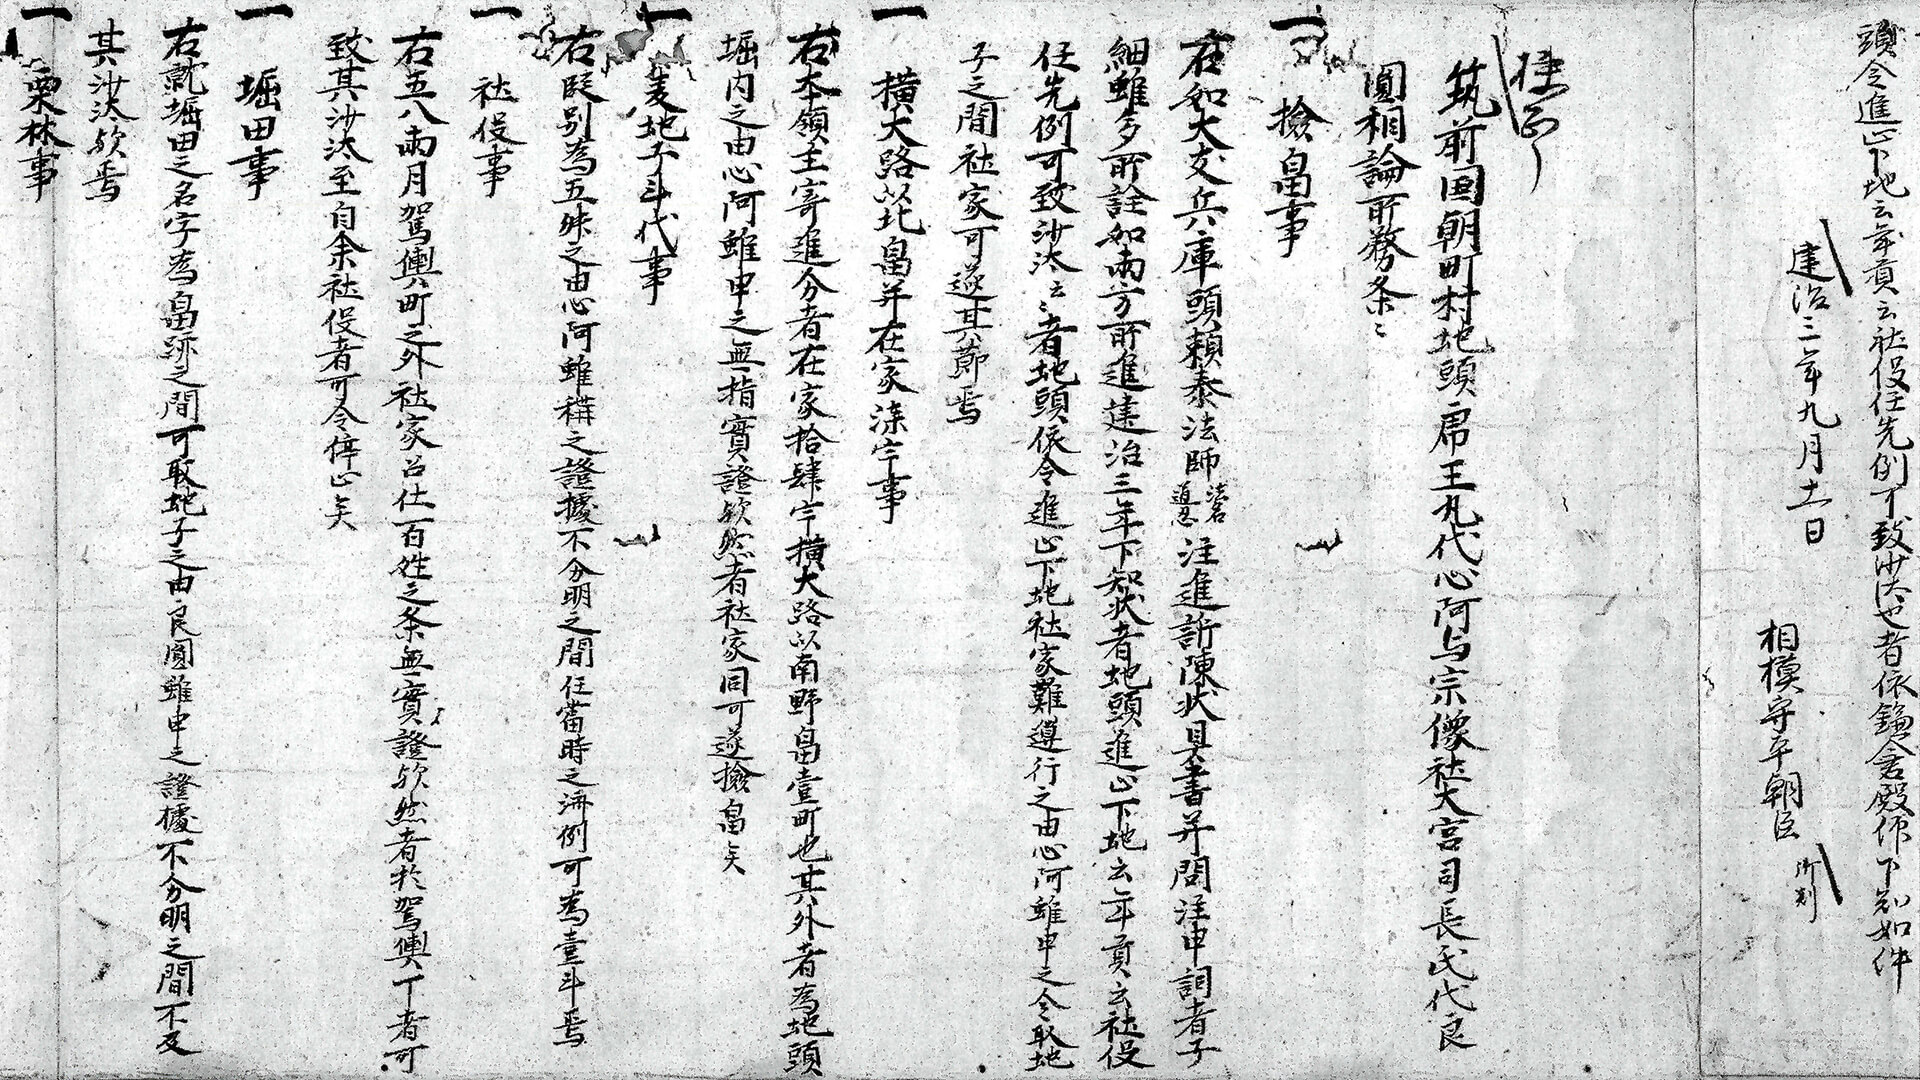 頭令進止下地云年貢云社役任先例可致沙汰也者依鎌倉殿仰下知如件
建治三年九月十一日
相模守平朝臣 御判
筑前国朝町村地頭 王丸代心阿与宗像社大宮司長氏代良
圓相論所務条々
一 撿畠事
右如大友兵庫頭頼泰法師 法名道忍 注進訴陳状具書并問注申詞者子
細雖多所詮如両方所進建治三年下知状者地頭進止下地云年貢云社役
任先例可致沙汰云々者地頭依令進止下地社家難遵行之由心阿雖申之令取地
子之間社家可遂其節焉
一 横大路以北畠并在家 宇事
右本領主寄進分者在家拾肆宇横大路以南野畠壹町也其外者為地頭
堀内之由心阿雖申之無指實證歟然者社家同可遂撿畠矣
一 麦地子斗代事
右段別為五舛之由心阿雖稱之證據不分明之間任當時之済例可為壹斗焉
一 社役事
右五八両月駕輿町之外社家召仕百姓之条無實證歟然者於駕輿丁者可
致其沙汰至自余社役者可令停止矣
一 堀田事
右就堀田之名字為畠跡之間可取地子之由良圓雖申之證據不分明之間不及
其沙汰歟焉
一 栗林事